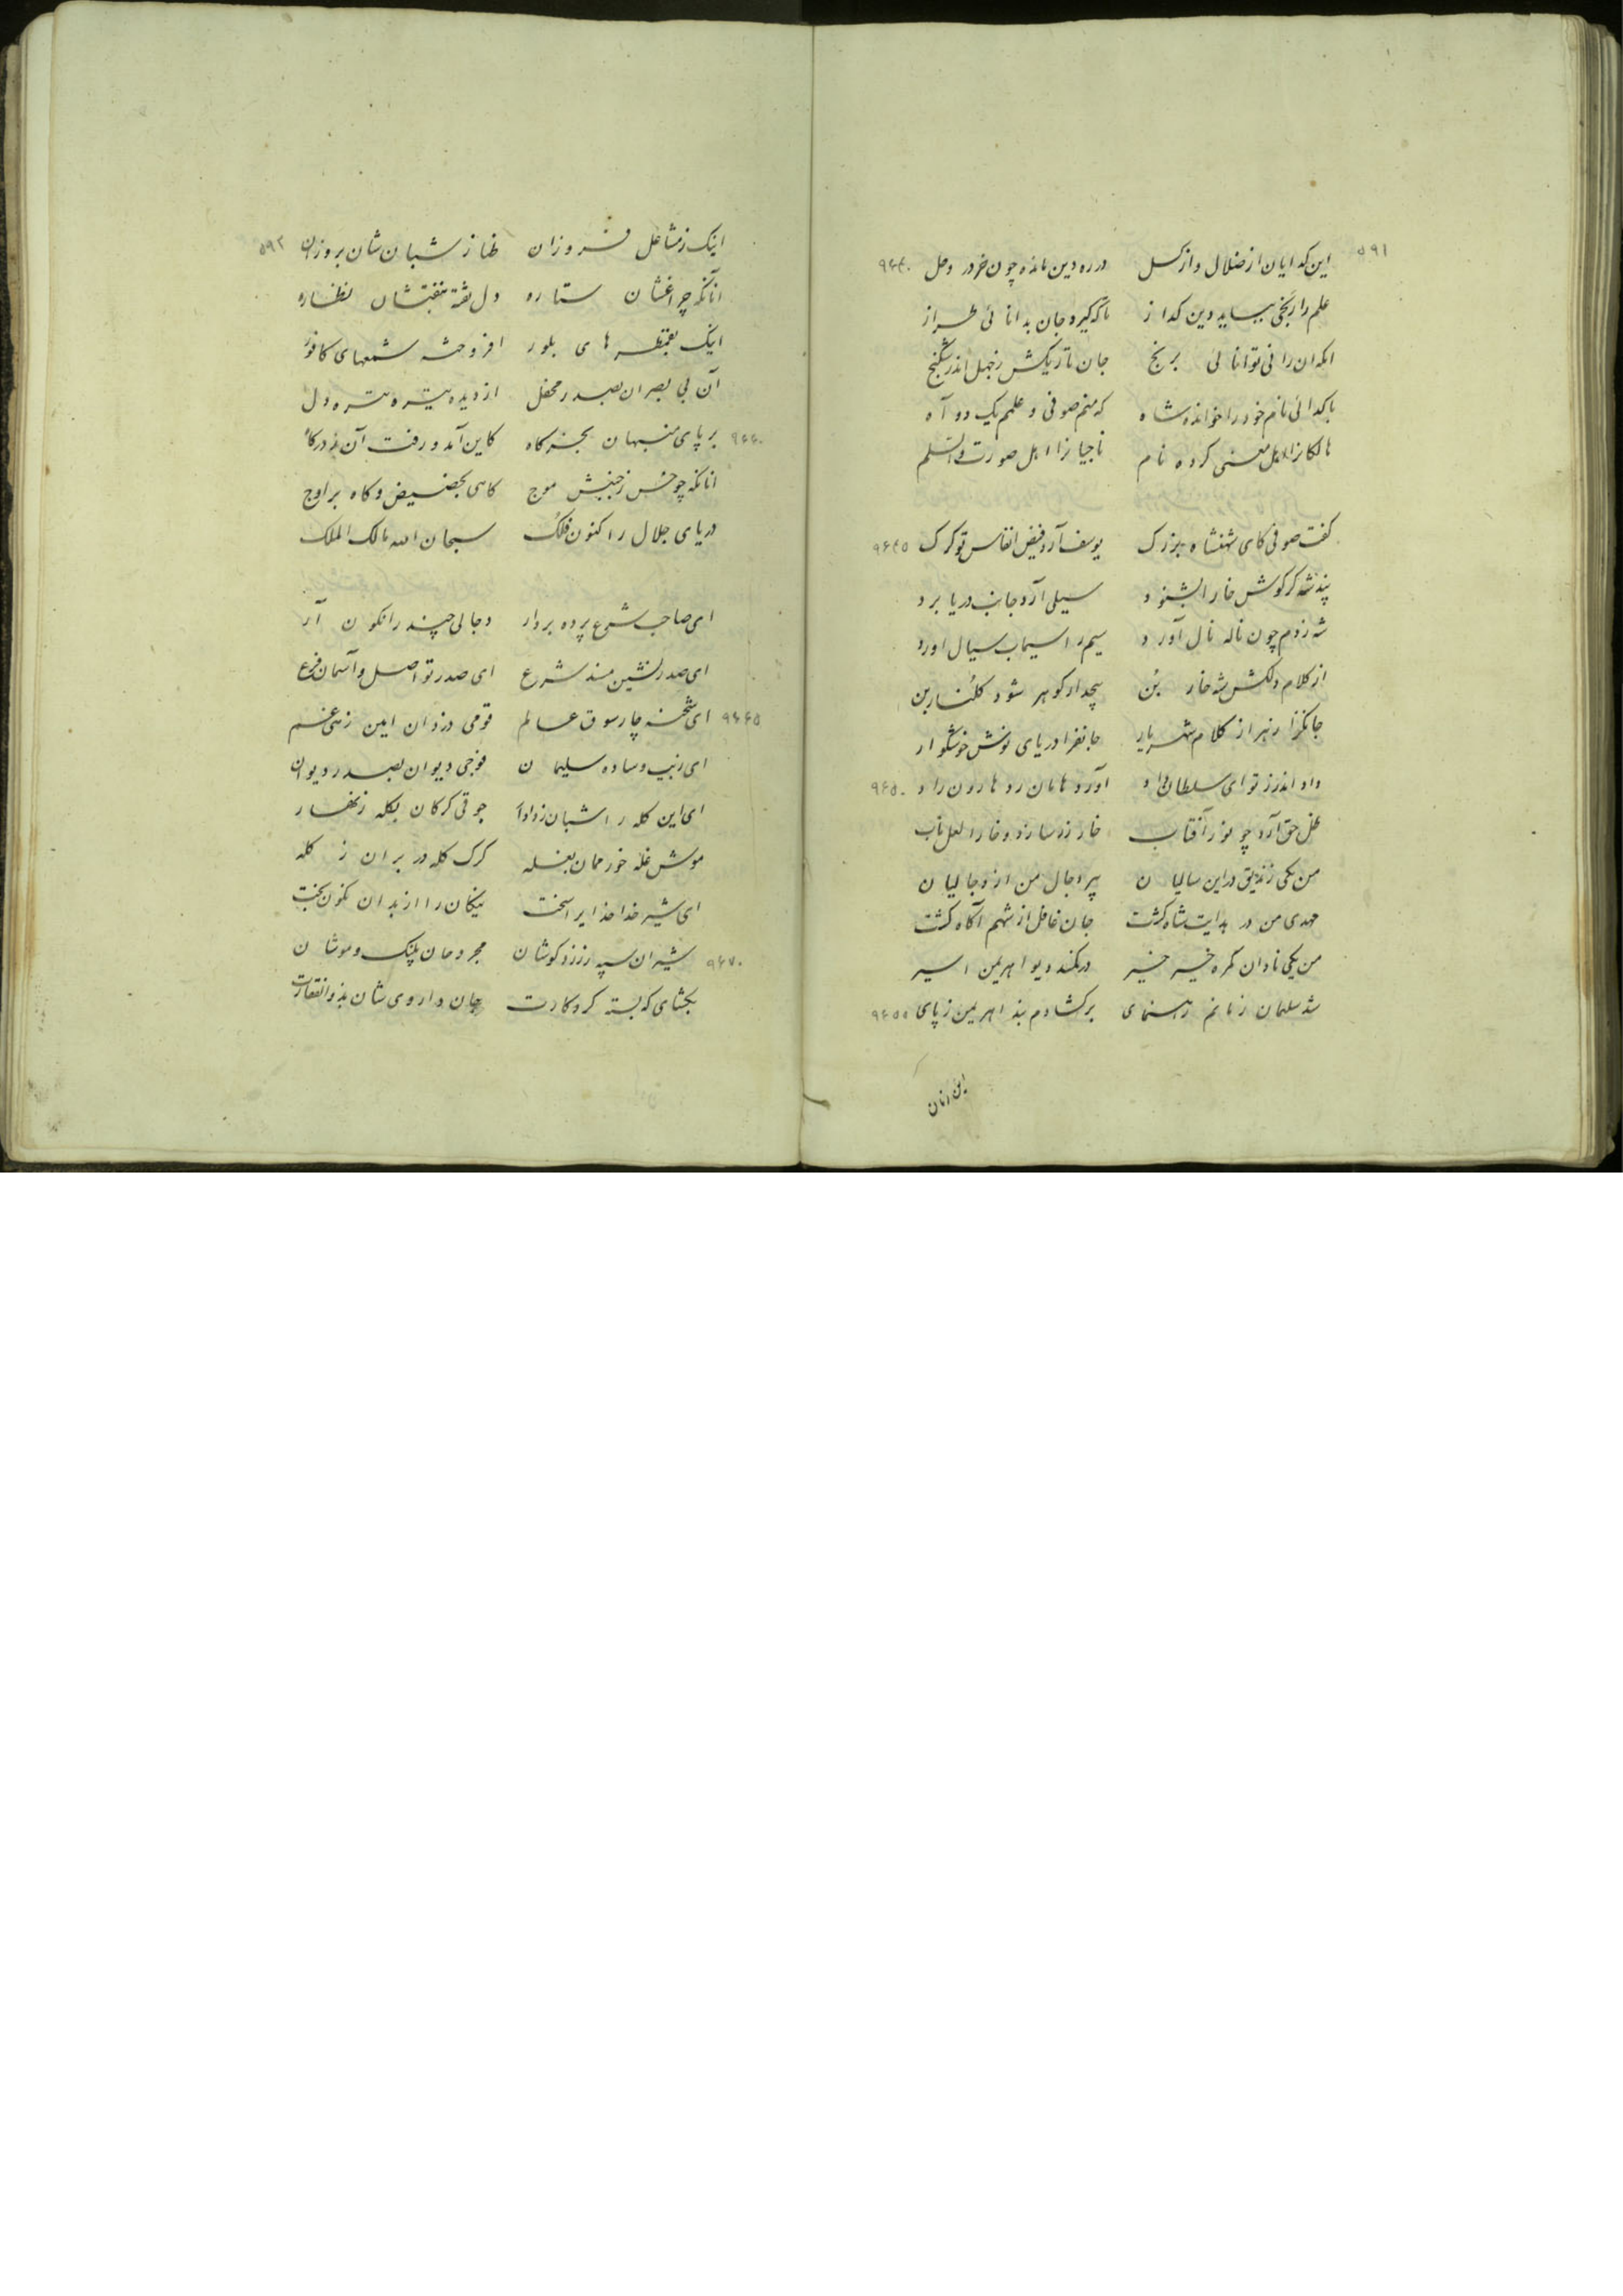 ۵۹۱
این گدایان از ضلال و از کسل در ره دین مانده چون خر در وحل ۹۶۴۰
علم را رنجی بباید دین گداز تا که گیرد جان بدانائی طراز
ابلهان را نی توانائی برنج جان تاریکش ز جهل اندر شکنج
با گدائی نام خود را خوانده شاه که منم صوفی و علمم یک دو آه
هالکانرا اهل معنی کرده نام ناجیانرا اهل صورت والسلم
گفت صوفی کای شهنشاه بزرگ یوسف آرد فیض انفاس تو گرگ ۹۶۴۵
پند شه گر گوش خارا بشنود سیلی آرد جانب دریا برد
شه ز دم چون ناله نال آورد سیم را سیماب سیال اورد
از کلام دلکش شه خار بن گلنار بن
جانگزا زهر از کلام شهریار جانفزا دریای نوش خوشگوار
داد اندرز تو ای سلطان راد آورد هامان رد هارون راد ۹۶۵۰
ظل حق آرد چو نور آفتاب خار زر سازد و خارا لعل ناب
من یکی زندیق در این سالیان پیر دجال من از دجالیان
مهدی من در هدایت شاه گشت جان غافل از شهم آگاه گشت
من یکی نادان گمره خیر خیر در کمند دیو اهریمن اسیر
شد سلیمان زمانم رهنمای بر گشادم بند اهریمن ز پای ۹۶۵۵
۵۹۲
اینک ز مشاعل فروزان طناز شبان شان بروزان
انانکه چراغشان ستاره دل تفته نظاره
اینک های بلور افروخته شمعهای کافور
آن بی بصران بصدر محفل از دیده تیره تیره دل
بر پای منبهان بخرگاه کاین آمد و رفت آن ز درگاه ۹۶۶۰
انانکه چو خس ز جنبش موج گاهی بحضیض و گاه بر اوج
دریای جلال را کنون فلک سبحان الله مالک الملک
ای صاحب شرع پرده بردار دجالی چند را نگون آر
ای صدر نشین مسند شرع ای صدر تو اصل و آسمان فرع
ای شحنه چار سوق عالم قومی دزدان ایمن ز هی غم ۹۶۶۵
ای زیب وساده سلیمان فوجی دیوان بصدر دیوان
ای این گله را شبان جوقی گرگان بگله زنهار
موش غله خور ممان بغله گرگ گله در بران ز گله
ای شیر خدا خدایرا سخت نیکان را از بدان نگون بخت
شیران سیه گوشان مجروحان پلنگ و موشان ۹۶۷۰
بگشای که بسته کرد کارت جان داروی شان بذو الفقارت